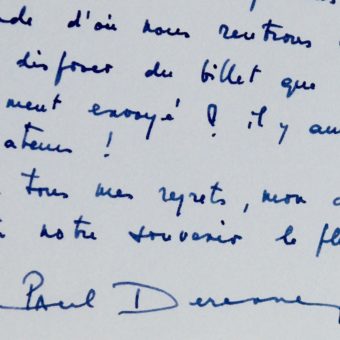 d'où nous rentrons
disposer du billet que
ment envoyé ? il y au
ateurs !
tous mes regrets, mon
notre souvenir le
Paul